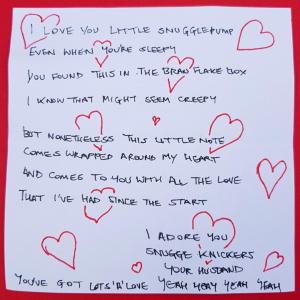 I LOVE YOU LITTLE SNUGGLEPUMP
EVEN WHEN YOU'RE SLEEPY
YOU FOUND THIS IN THE BRAN FLAKE BOX
I KNOW THAT MIGHT SEEM CREEPY
BUT NONETHELESS THIS LITTLE NOTE
COMES WRAPPED AROUND MY HEART
AND COMES TO YOU WITH ALL THE LOVE
THAT I'VE HAD SINCE THE START
I ADORE YOU
SNUGGE KNICKERS
YOUR HUSBAND
YOU'VE GOT LOTS'A'LOVE YEAH YEAH YEAH YEAH